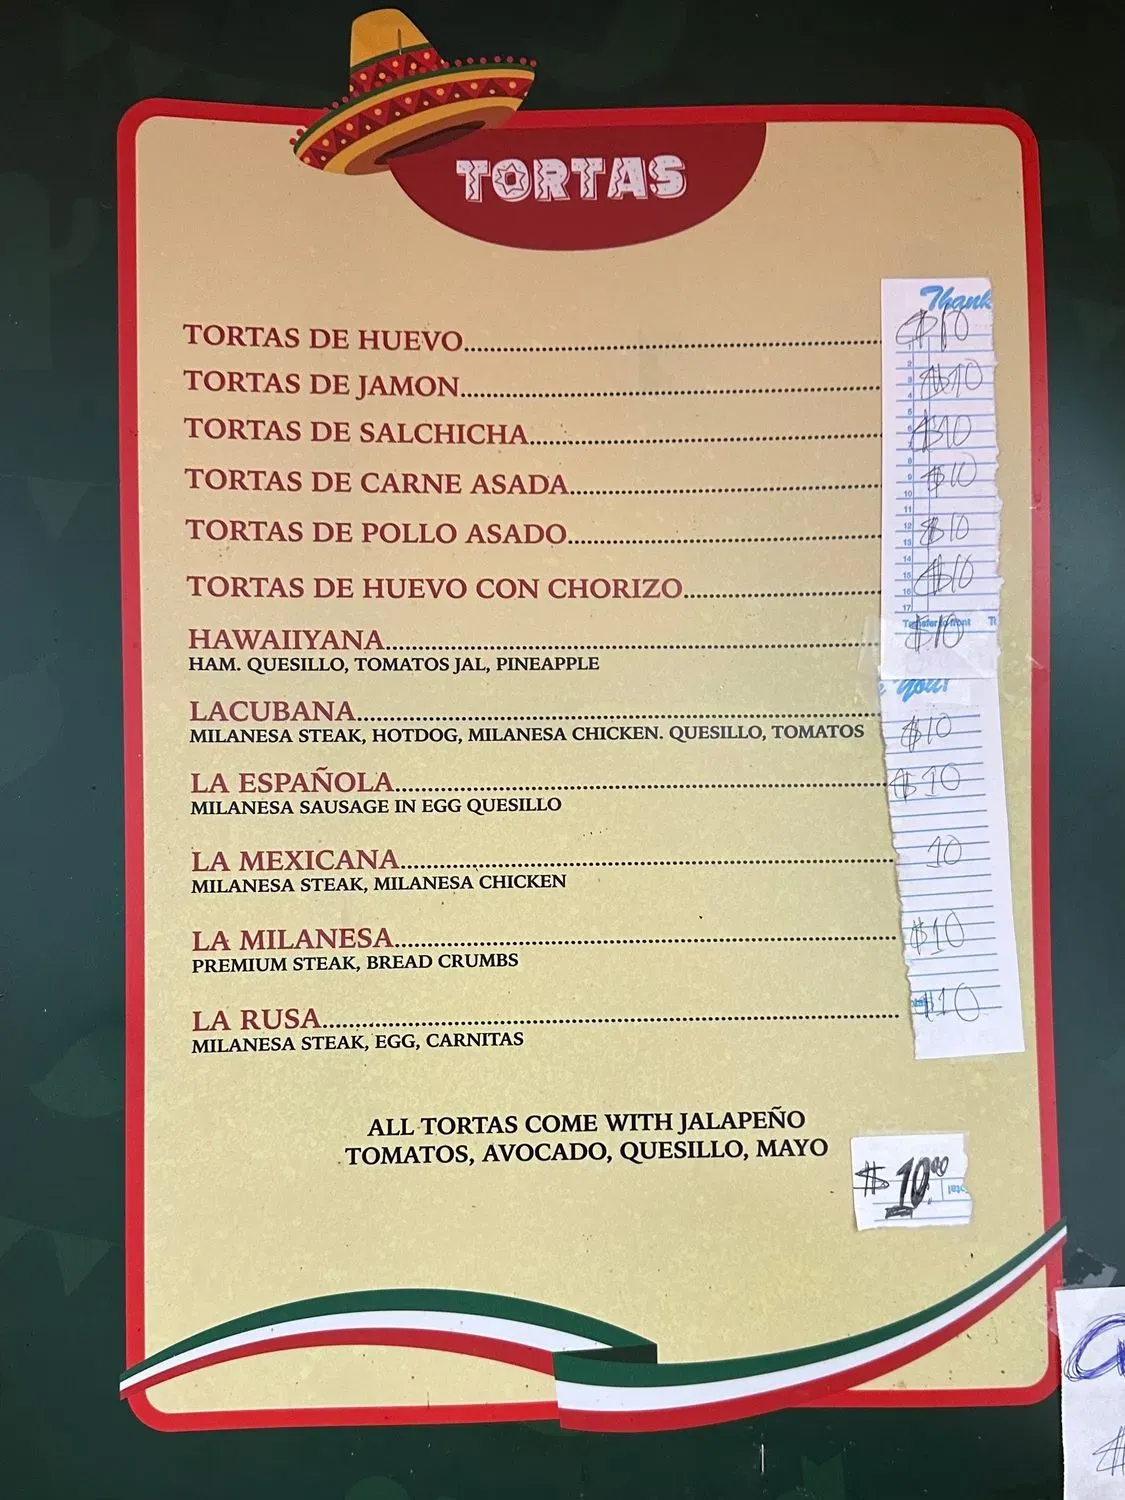 TORTAS
Thank
TORTAS DE HUEVO $10
TORTAS DE JAMON $10
TORTAS DE SALCHICHA $10
TORTAS DE CARNE ASADA $10
TORTAS DE POLLO ASADO $10
TORTAS DE HUEVO CON CHORIZO $10
HAWAIIYANA $10
HAM. QUESILLO, TOMATOS JAL, PINEAPPLE
You!
LACUBANA $10
MILANESA STEAK, HOTDOG, MILANESA CHICKEN. QUESILLO, TOMATOS
LA ESPAÑOLA $10
MILANESA SAUSAGE IN EGG QUESILLO
LA MEXICANA 10
MILANESA STEAK, MILANESA CHICKEN
LA MILANESA $10
PREMIUM STEAK, BREAD CRUMBS
LA RUSA $10
MILANESA STEAK, EGG, CARNITAS
ALL TORTAS COME WITH JALAPEÑO
TOMATOS, AVOCADO, QUESILLO, MAYO
$10.00